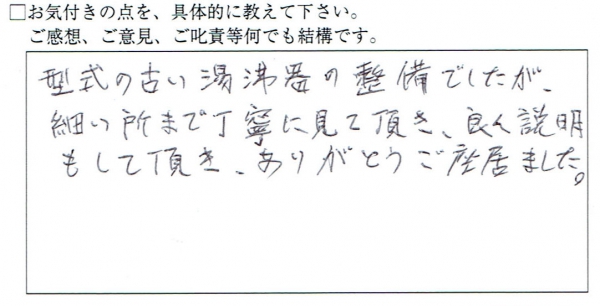 □お気付きの点を、具体的に教えて下さい。
ご感想、ご意見、ご叱責等何でも結構です。
型式の古い湯沸器の整備でしたが、
細い所まで丁寧に見て頂き、良く説明
もして頂き、ありがとうご座居ました。